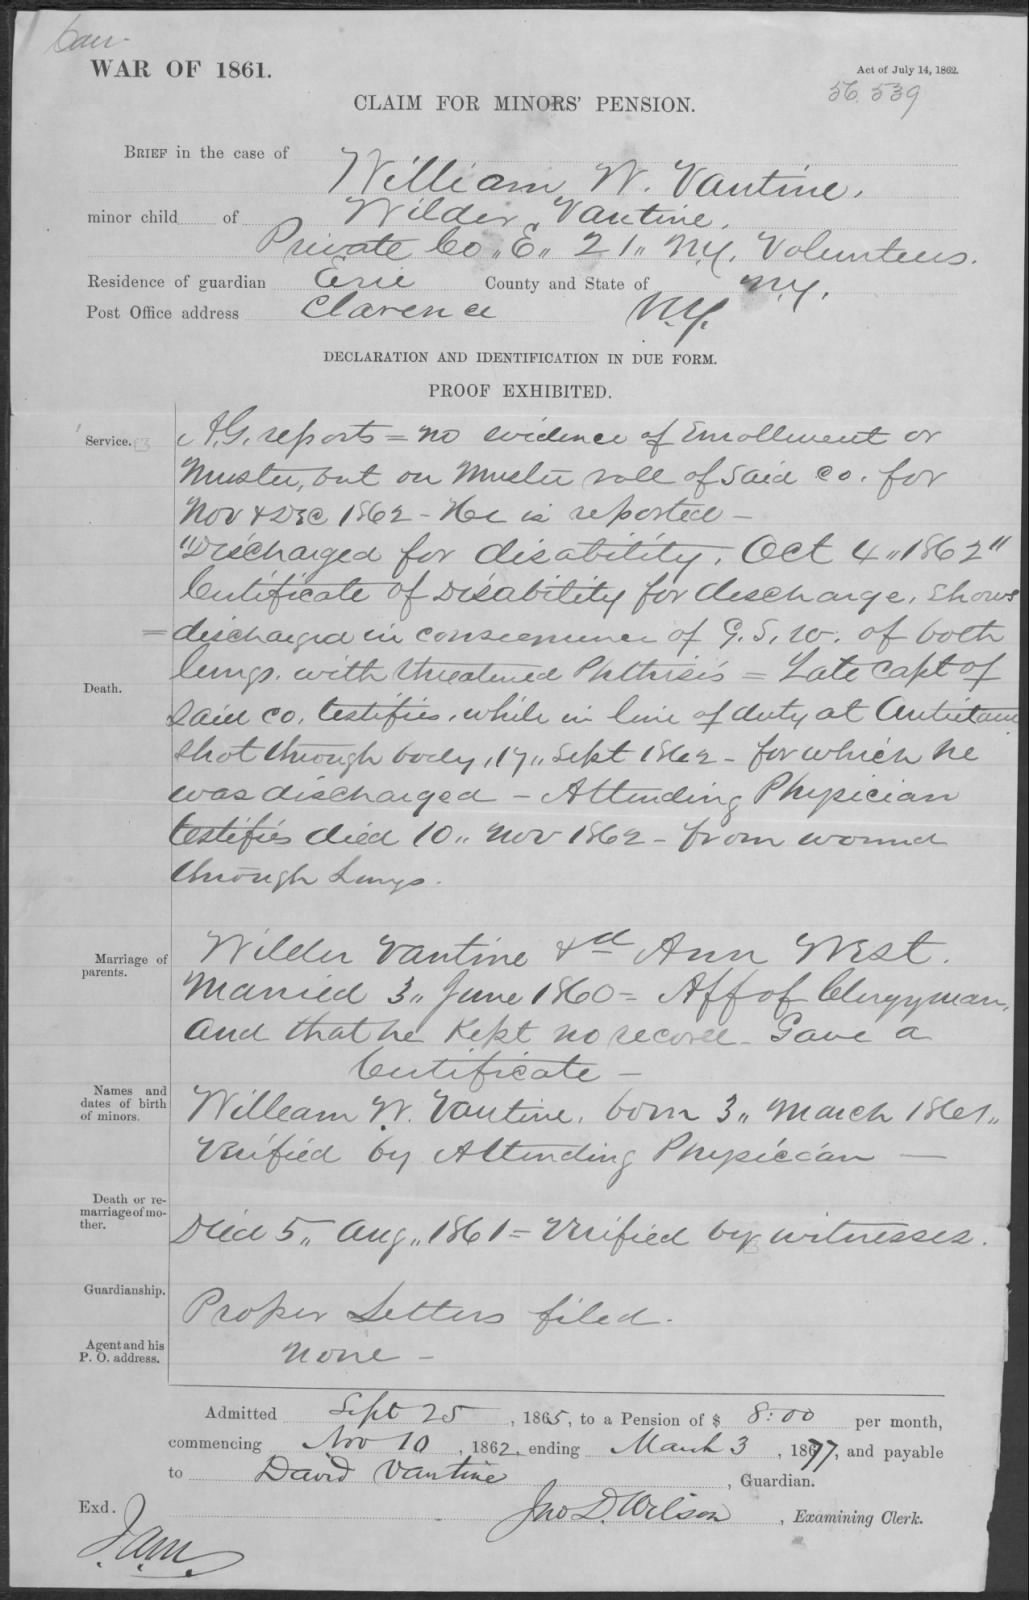 WAR OF 1861.
Act of July 14, 1862.
56.539
CLAIM FOR MINORS' PENSION.
BRIEF in the case of
William W. Vantine,
minor child of Wilder Vantine,
Private Co. "E" 21" N.Y. Volunteers.
Residence of guardian Erie County and State of N.Y.
Post Office address Clarence N.Y.
DECLARATION AND IDENTIFICATION IN DUE FORM.
PROOF EXHIBITED.
Service. A.G. reports = no evidence of Enrollment or
Muster, but on Muster roll of said Co. for
Nov & Dec 1862 - He is reported -
"Discharged for disability. Oct 4" 1862"
Certificate of Disability for discharge, shows
= discharged in consequence of G.S.w. of both
lungs. with threatened Phthisis = Late Capt of
Death. said co. testifies, while in line of duty at Antietam
shot through body, 17" Sept 1862 - for which he
was discharged - Attending Physician
testifies died 10" Nov 1862 - from wound
through Lungs.
Marriage of parents. Wilder Vantine &d Ann West.
Married 3" June 1860 = Aff of Clergyman,
and that he Kept no record - Gave a
Certificate -
Names and dates of birth of minors. William W. Vantine, born 3" March 1861"
Verified by Attending Physician -
Death or remarriage of mother. Died 5" Aug" 1861 = Verified by witnesses.
Guardianship. Proper Letters filed.
Agent and his P. O. address. None -
Admitted Sept 25, 1865, to a Pension of $ 8:00 per month,
commencing Nov 10, 1862, ending March 3, 1877, and payable
to David Vantine, Guardian.
Exd. Jno D. Wilson, Examining Clerk.
J.A.M.